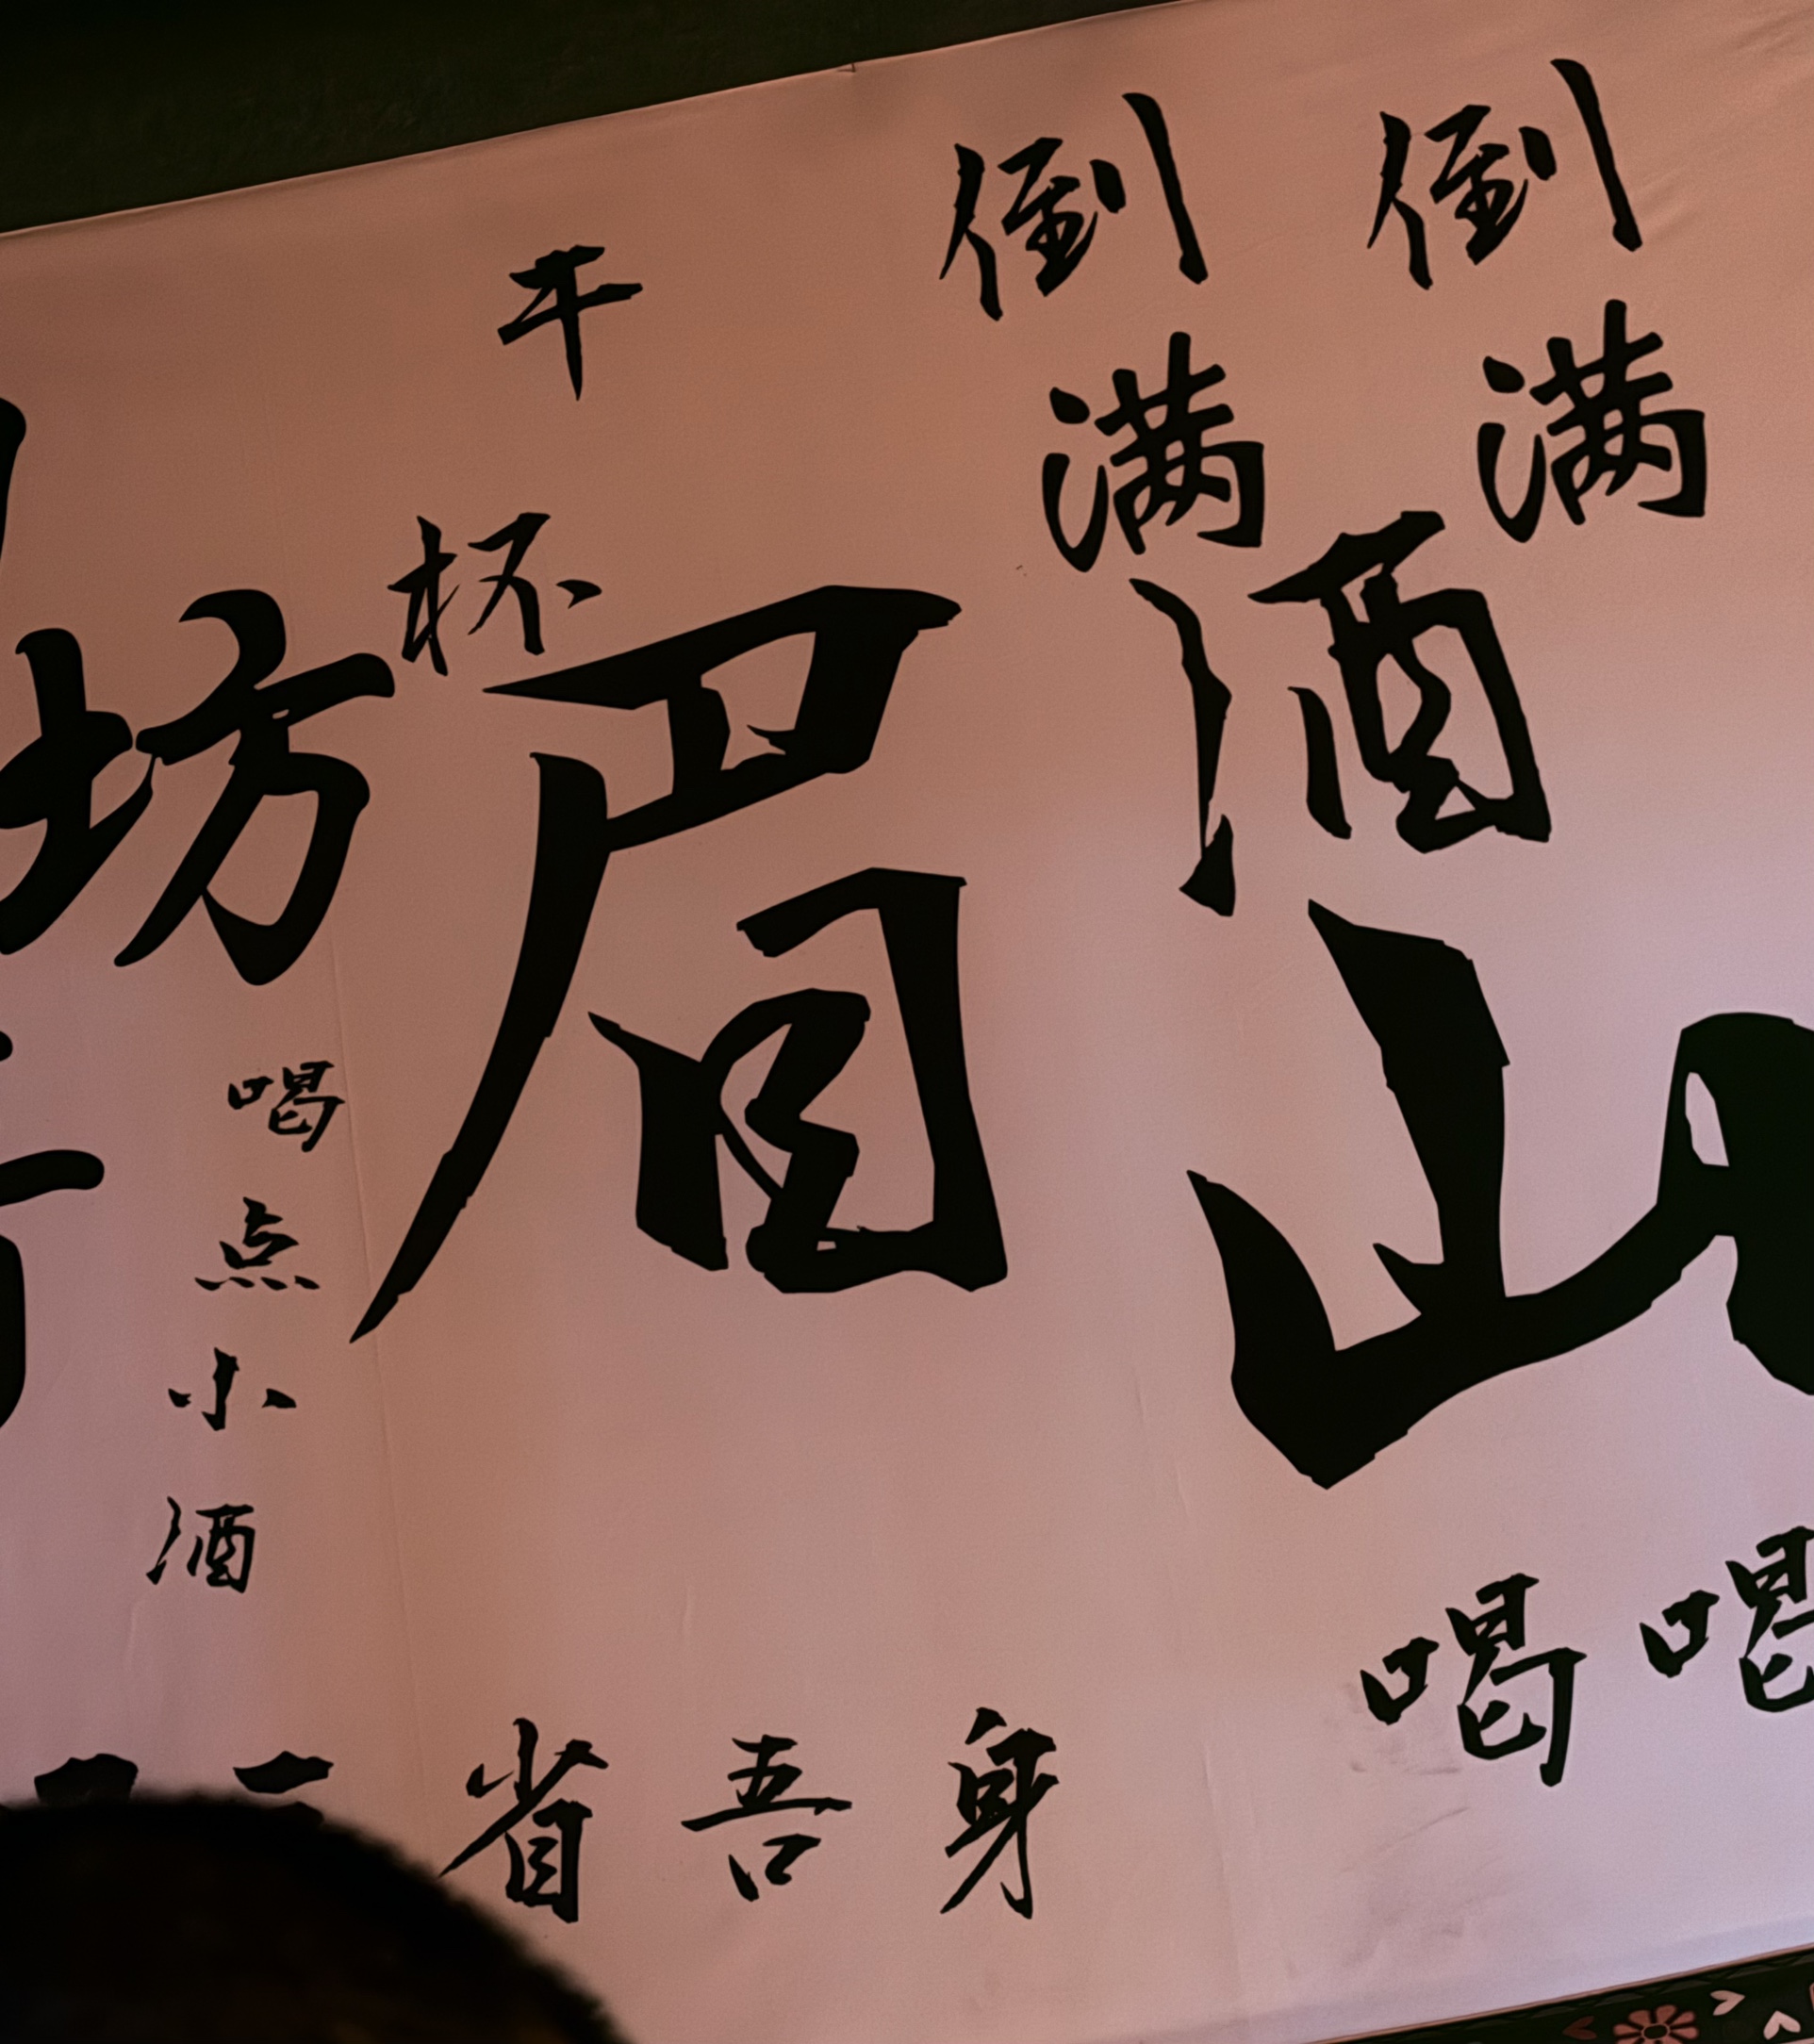 倒满
倒满
酒
干杯
山
眉
坊
喝点小酒
喝喝
身吾省